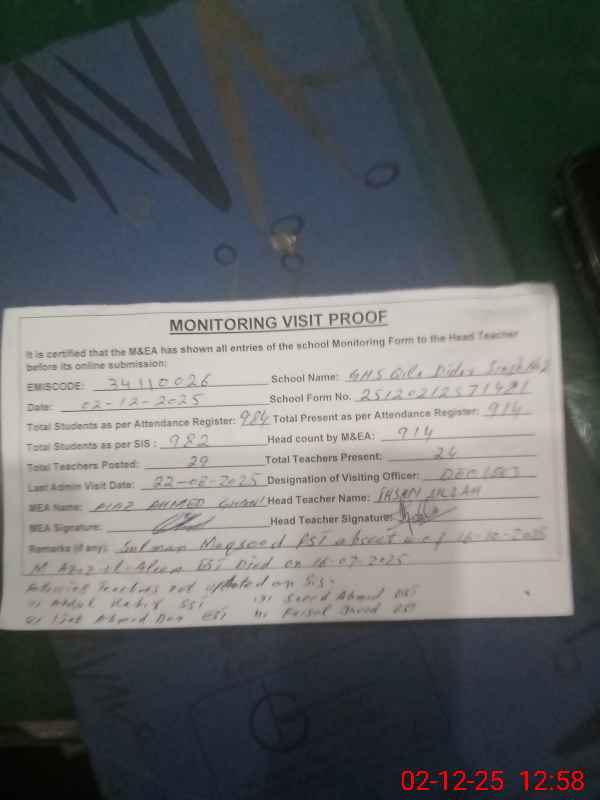 MONITORING VISIT PROOF
It is certified that the M&EA has shown all entries of the school Monitoring Form to the Head Teacher
before its online submission:
EMISCODE: 34110026 School Name: GHS Qila Didar Singh No 2
Date: 02-12-2025 School Form No. 25120212571481
Total Students as per Attendance Register: 984 Total Present as per Attendance Register: 914
Total Students as per SIS : 982 Head count by M&EA: 914
Total Teachers Posted: 29 Total Teachers Present: 24
Last Admin Visit Date: 22-08-2025 Designation of Visiting Officer:
MEA Name: AHMED Head Teacher Name: IHSAN ULLAH
MEA Signature: Head Teacher Signature:
Remarks (if any): Salman Maqsood PST absent w.e.f 16-10-2025
M. Aziz-ul- EST Died on 16-07-2025
Following Teachers not updated on Sis:
Abdul SST Saeed Ahmed EST
Ahmed EST Faisal EST
02-12-25 12:58